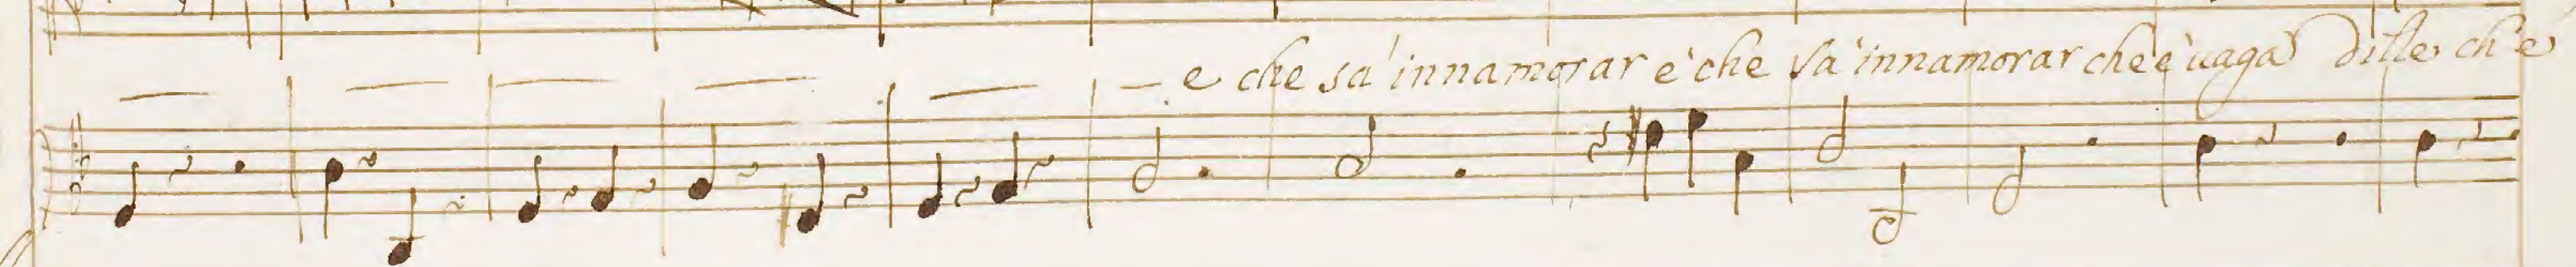 e che sa' innamorar e' che sa' innamorar che è uaga dille ch'è